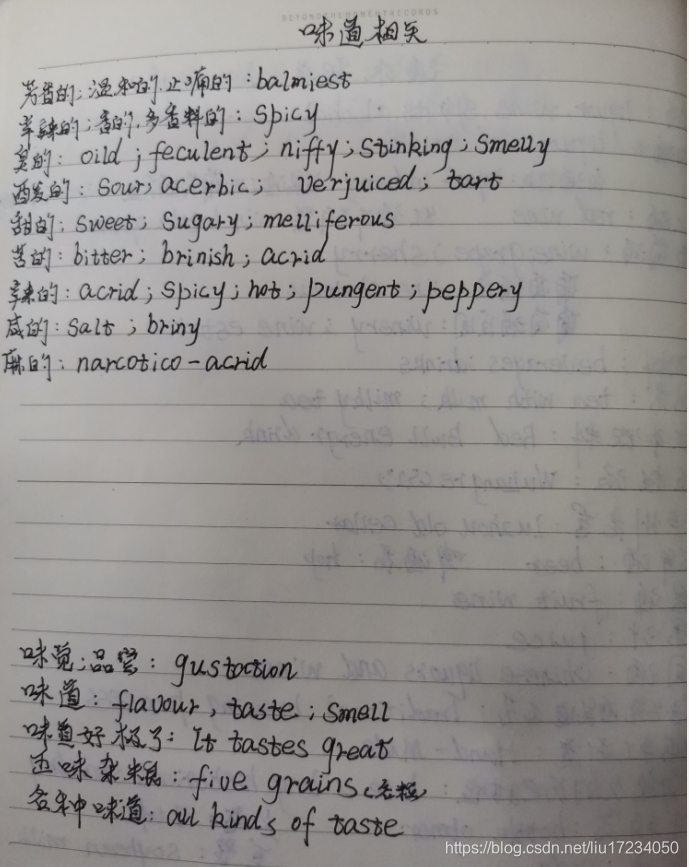 味道相关
芳香的;温和的,止痛的:balmiest
辛辣的;香的,多香料的:Spicy
臭的:oild;feculent;niffy;Stinking;Smelly
酸的:Sour;acerbic;verjuiced;tart
甜的:Sweet;Sugary;melliferous
苦的:bitter;brinish;acrid
辛辣的:acrid;Spicy;hot;pungent;peppery
咸的:Salt;briny
麻的:narcotico-acrid
味觉;品尝:gustaction
味道:flavour,taste;Smell
味道好极了:It tastes great
五味杂粮:five grains
各种味道:all kinds of taste
https://blog.csdn.net/liu17234050